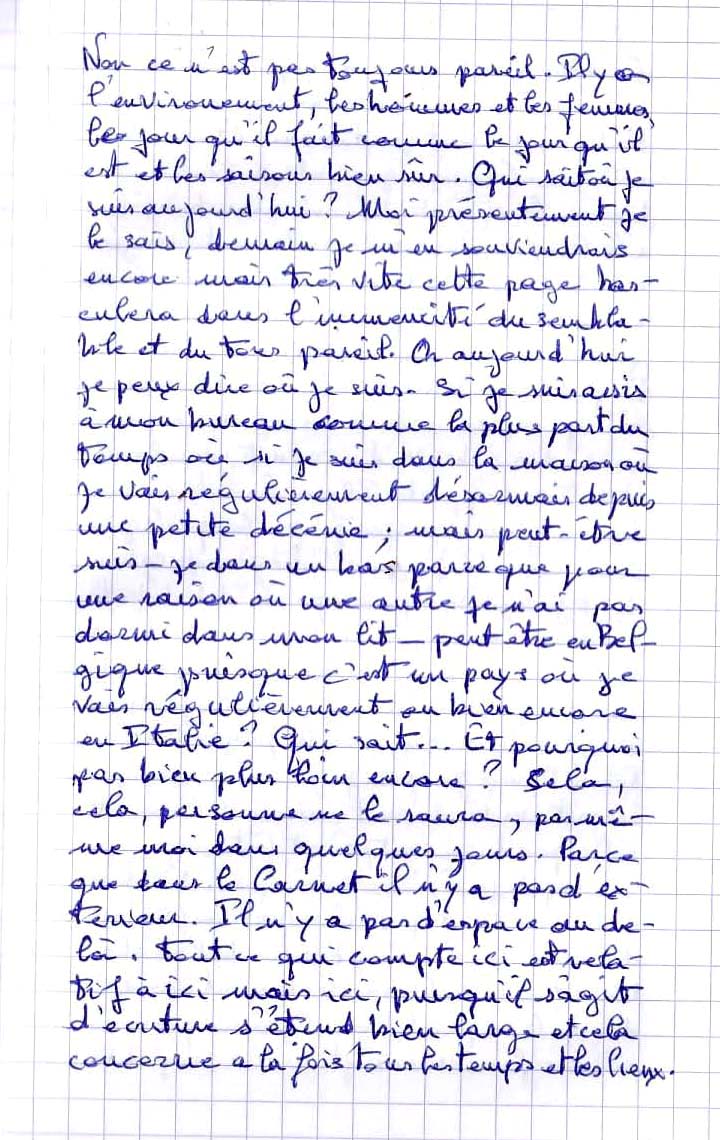 Non ce n'est pas toujours pareil. Il y a
l'environement, les hommes et les femmes,
les jour qu'il fait comme le jour qu'il
est et les saisons bien sûr. Qui sait où je
suis aujourd'hui ? Moi présentement je
le sais, demain je m'en souviendrais
encore mais très vite cette page bas-
culera dans l'immencité du sembla-
ble et du tous pareil. Or aujourd'hui
je peux dire où je suis. Si je suis assis
à mon bureau comme la plus part du
temps où si je suis dans la maison où
je vais régulièrement désormais depuis
une petite décénie ; mais peut-être
suis-je dans un bas parce que pour
une raison où une autre je n'ai pas
dormi dans mon lit - peut être en Bel-
gique puisque c'est un pays où je
vais régulièrement ou bien encore
en Italie ? Qui sait... Et pourquoi
pas bien plus loin encore ? Sela,
cela, personne ne le saura, pas mê-
me moi dans quelques jours. Parce
que dans le Carnet il n'y a pas d'ex-
terieur. Il n'y a pas d'espace au de-
là. Tout ce qui compte ici est rela-
tif à ici mais ici, puisqu'il s'agit
d'écriture s'étend bien large et cela
concerne a la fois tous les temps et les lieux.